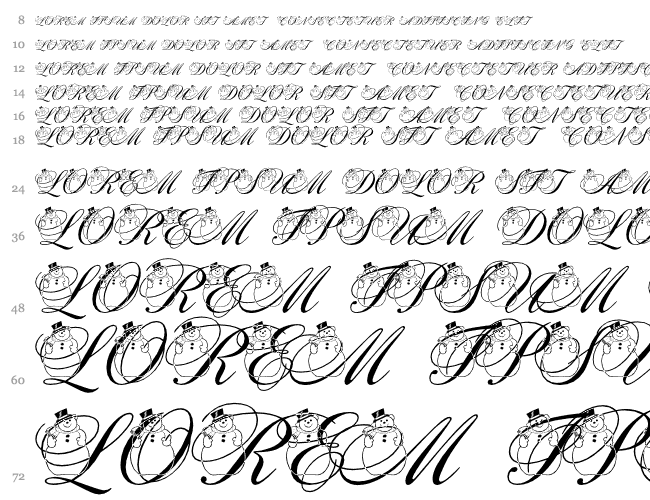 8 LOREM IPSUM DOLOR SIT AMET CONSECTETUER ADIPISCING ELIT
10 LOREM IPSUM DOLOR SIT AMET CONSECTETUER ADIPISCING ELIT
12 LOREM IPSUM DOLOR SIT AMET CONSECTETUER ADIPISC
14 LOREM IPSUM DOLOR SIT AMET CONSECTETUER
16 LOREM IPSUM DOLOR SIT AMET CONSECTE
18 LOREM IPSUM DOLOR SIT AMET CONS
24 LOREM IPSUM DOLOR SIT AM
36 LOREM IPSUM DOLO
48 LOREM IPSUM
60 LOREM IPSU
72 LOREM IP